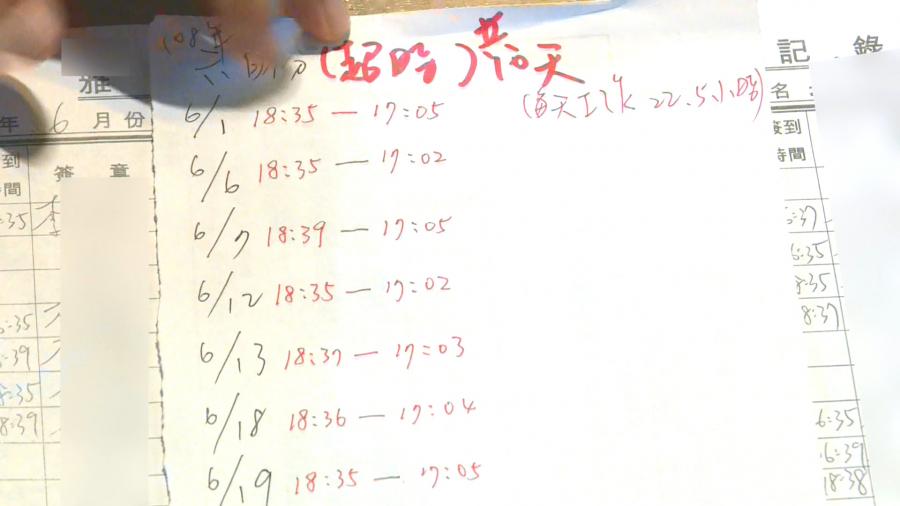 108年
六月份(超時)共10天
(每天工作22.5小時)
6/1 18:35 — 17:05
6/6 18:35 — 17:02
6/7 18:39 — 17:05
6/12 18:35 — 17:02
6/13 18:37 — 17:03
6/18 18:36 — 17:04
6/19 18:35 — 17:05
雅
年 6 月份
到 簽章
時間
:35
:35
:39
:35
8:39
記錄
名:
簽到
時間
:37
6:35
:35
8:37
6:35
6:39
18:38